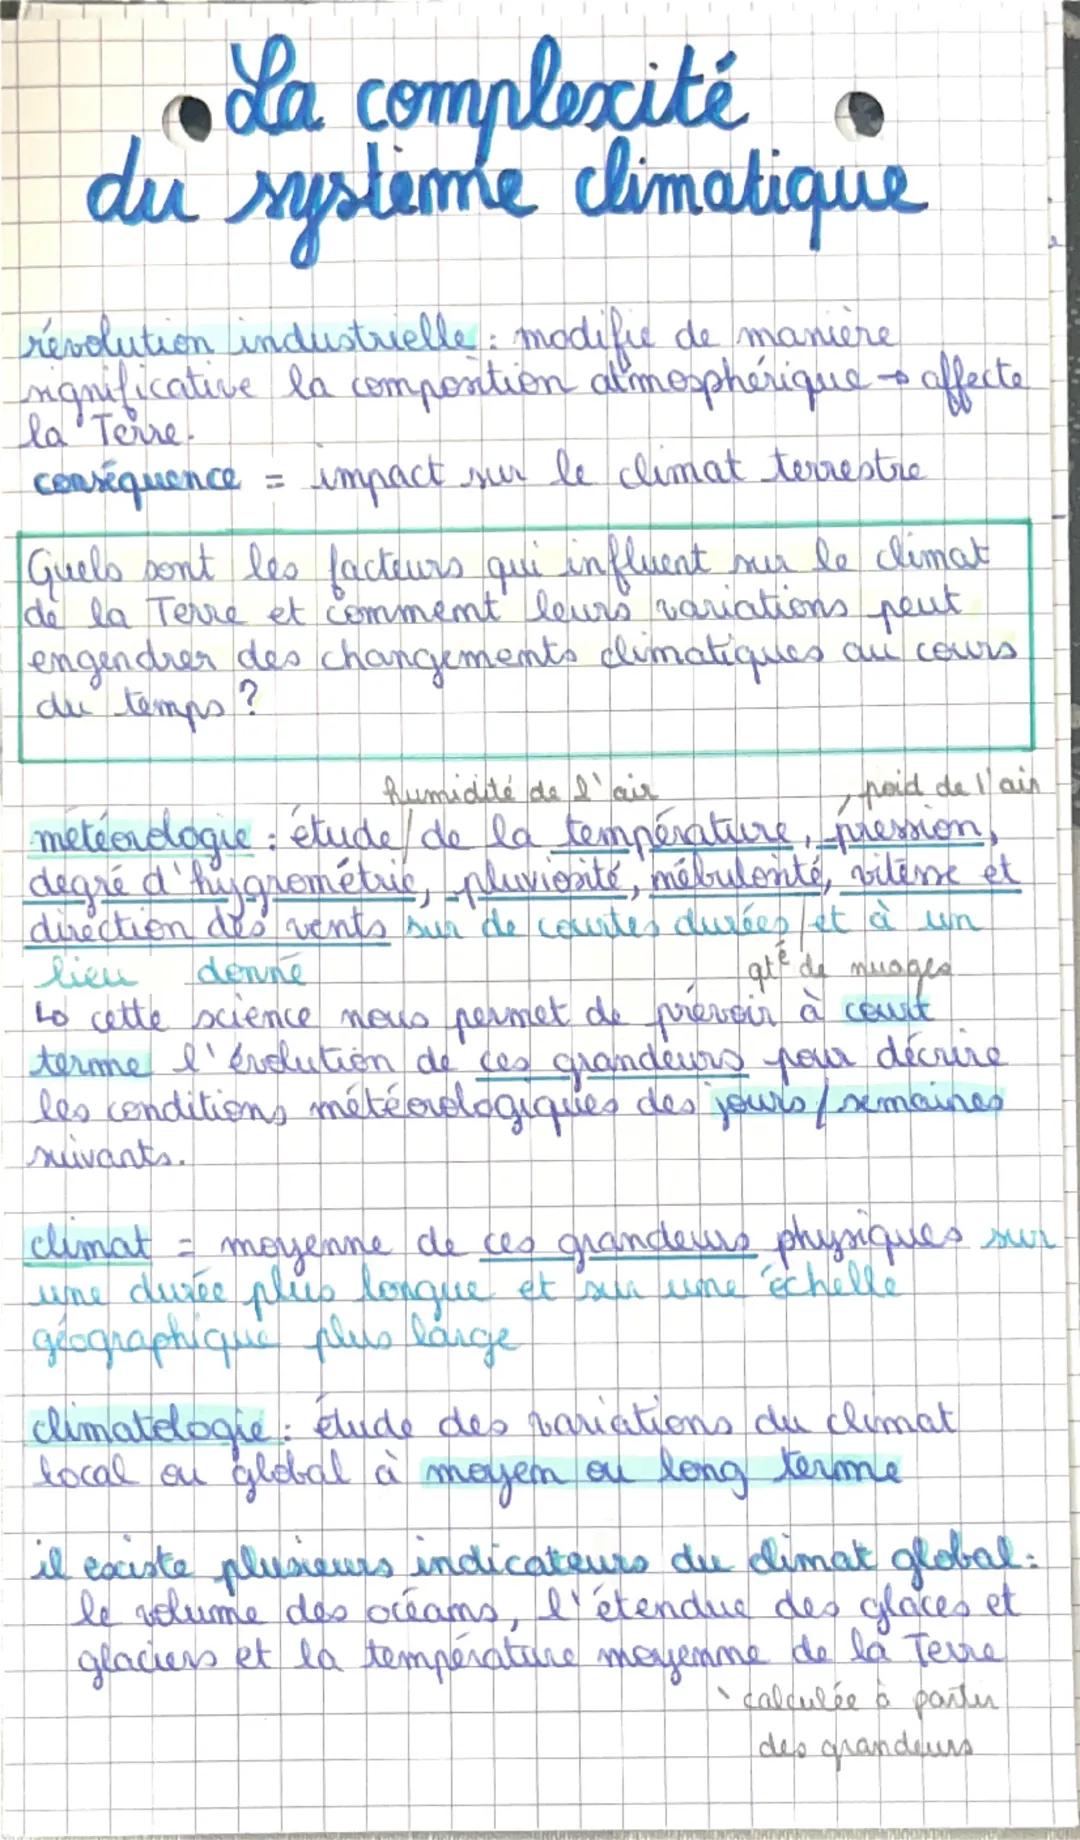 La complexité
du système climatique
révolution industrielle : modifie de manière
significative la composition atmosphérique → affecte
la Terre.
conséquence = impact sur le climat terrestre
Quels sont les facteurs qui influent sur le climat
de la Terre et comment leurs variations peut
engendrer des changements climatiques au cours
du temps ?
humidité de l'air
poid de l'air
météorologie : étude de la température, pression,
degré d'hygrométrie, pluviosité, nébulosité, vitesse et
direction des vents sur de courtes durées et à un
lieu donné
qté de nuages
↳ cette science nous permet de prévoir à court
terme l'évolution de ces grandeurs pour décrire
les conditions météorologiques des jours / semaines
suivants.
climat = moyenne de ces grandeurs physiques sur
une durée plus longue et sur une échelle
géographique plus large
climatologie : étude des variations du climat
local ou global à moyen ou long terme
il existe plusieurs indicateurs du climat global :
le volume des océans, l'étendue des glaces et
glaciers et la température moyenne de la Terre
calculée à partir
des grandeurs